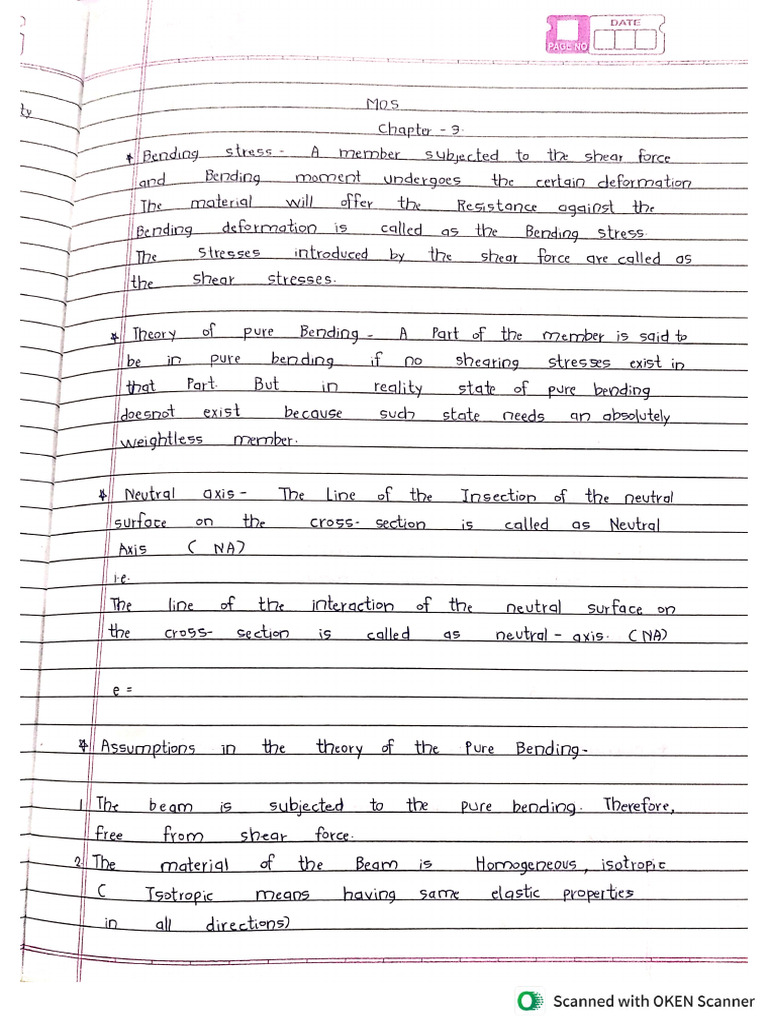 PAGE NO
DATE
ty
MOS
Chapter - 3.
* Bending stress - A member subjected to the shear force
and Bending moment undergoes the certain deformation
The material will offer the Resistance against the
Bending deformation is called as the Bending stress.
The stresses introduced by the shear force are called as
the shear stresses.
* Theory of pure Bending - A Part of the member is said to
be in pure bending if no shearing stresses exist in
that Part. But in reality state of pure bending
doesnot exist because such state needs an absolutely
weightless member.
* Neutral axis - The Line of the Insection of the neutral
surface on the cross- section is called as Neutral
Axis ( NA)
i.e.
The line of the interaction of the neutral surface on
the cross- section is called as neutral - axis. (NA)
e =
* Assumptions in the theory of the Pure Bending -
1 The beam is subjected to the pure bending. Therefore,
free from shear force.
2. The material of the Beam is Homogeneous, isotropic
( Isotropic means having same elastic properties
in all directions)
Scanned with OKEN Scanner